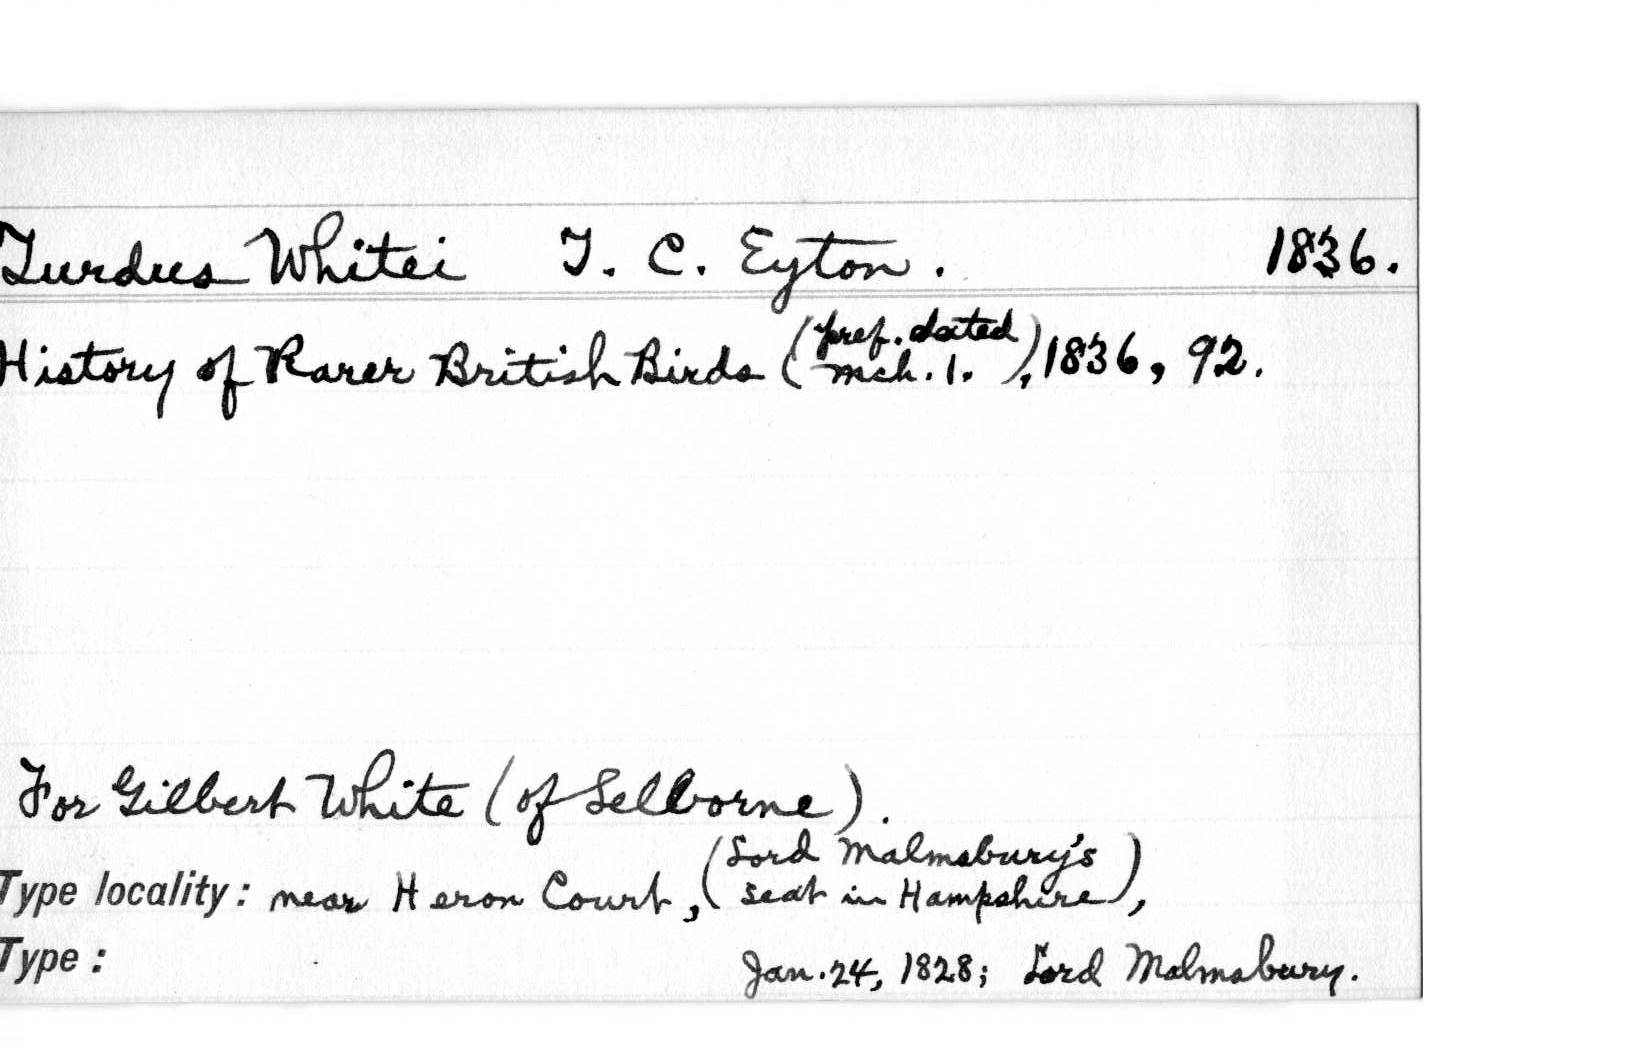 Turdus Whitei T. C. Eyton. 1836.
History of Rarer British Birds (pref. dated
mch. 1.), 1836, 92.
For Gilbert White (of Selborne).
Type locality: near Heron Court, (Lord Malmsbury's
seat in Hampshire),
Type: Jan. 24, 1828; Lord Malmsbury.